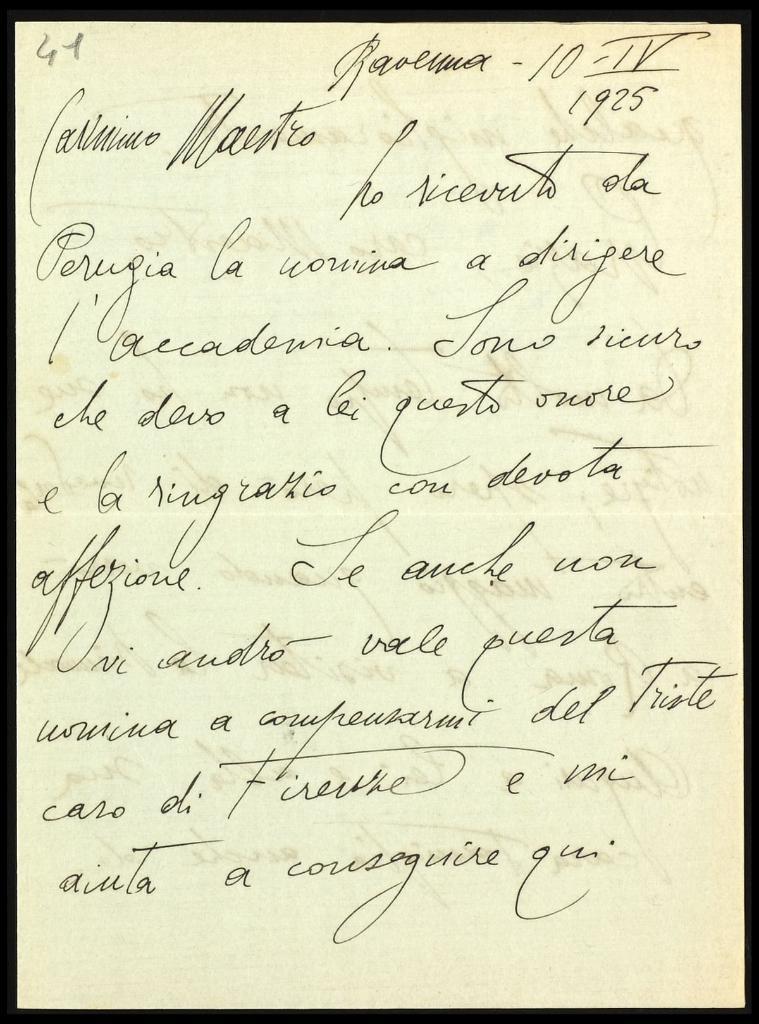 41
Ravenna - 10 - IV
1925
Carissimo Maestro
ho ricevuto da
Perugia la nomina a dirigere
l'accademia. Sono sicuro
che devo a lei questo onore
e la ringrazio con devota
affezione. Se anche non
vi andrò vale questa
nomina a compensarmi del triste
caso di Firenze e mi
aiuta a conseguire qui